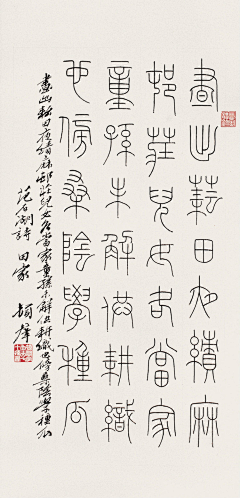 昼出耘田夜绩麻
邨莊兒女各當家
童孫未解供耕織
也傍桑陰學種瓜
昼出耘田夜绩麻邨莊兒女各當家童孫未解供耕織也傍桑陰學種瓜
范石湖詩 田家